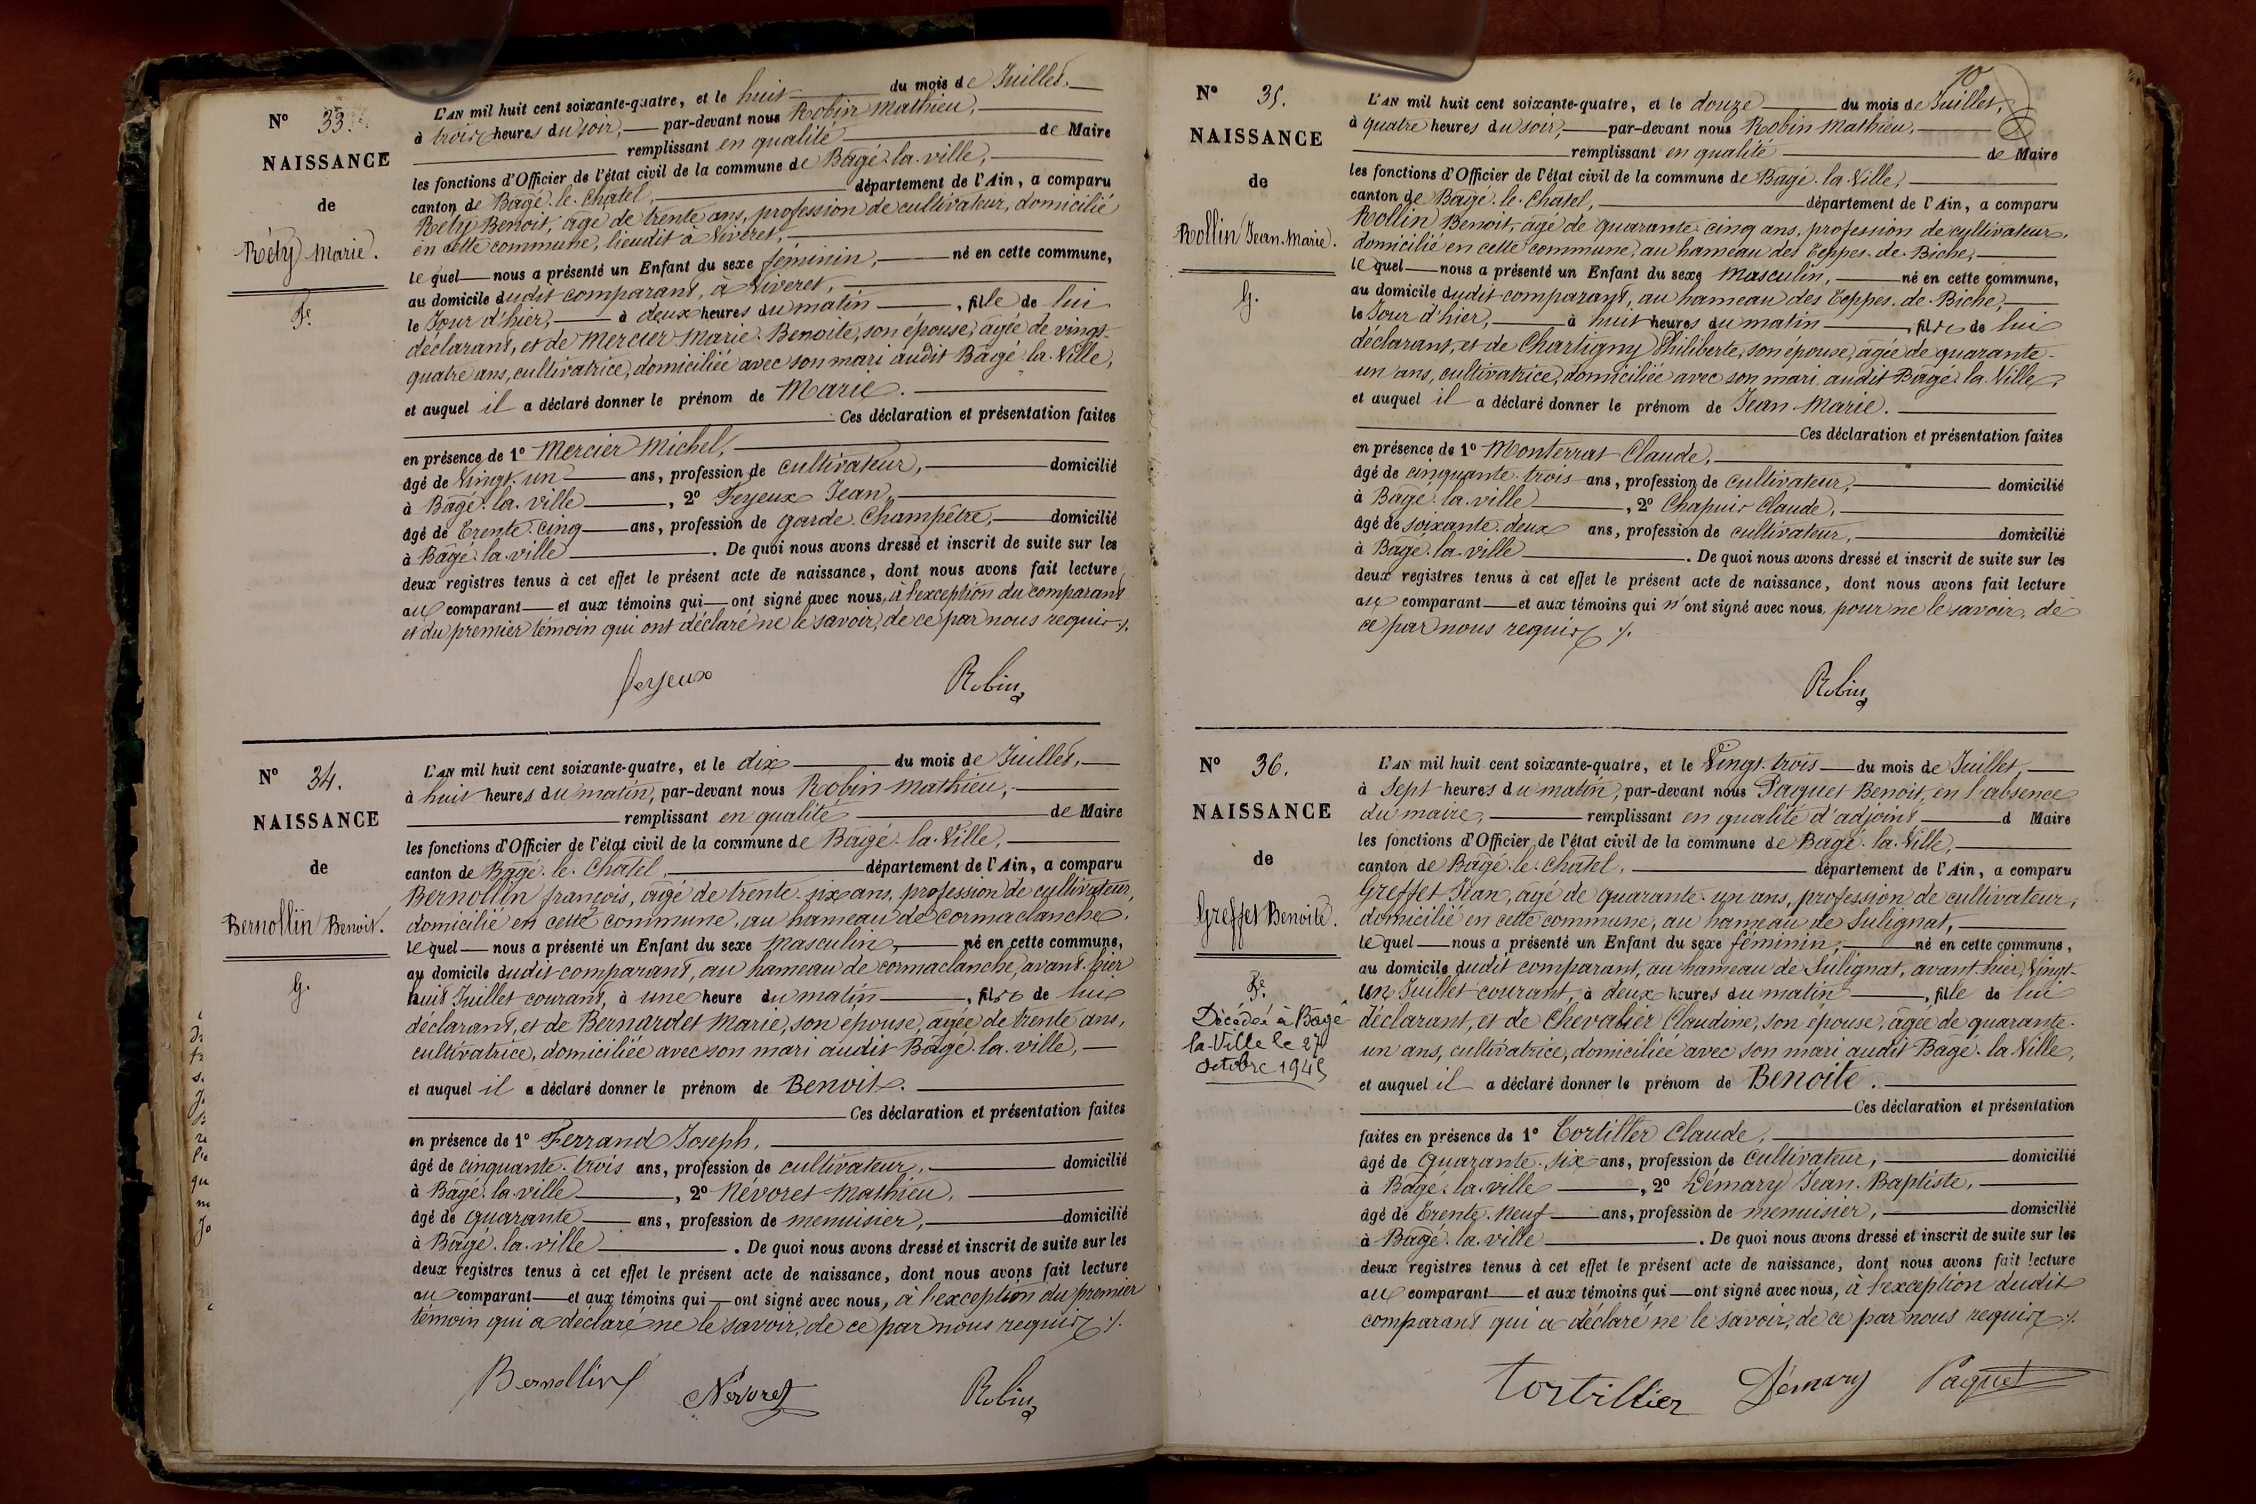 N° 33.
NAISSANCE
de
Réty Marie.
Fe.
L'AN mil huit cent soixante-quatre, et le huit du mois de Juillet,
à trois heures du soir, par-devant nous Robin Mathieu,
remplissant en qualité de Maire
les fonctions d'Officier de l'état civil de la commune de Bâgé-la-ville,
canton de Bâgé-le-Chatel, département de l'Ain, a comparu
Réty Benoit, âgé de trente ans, profession de cultivateur, domicilié
en cette commune, lieudit à Viveret,
lequel nous a présenté un Enfant du sexe féminin, né en cette commune,
au domicile dudit comparant, à Viveret,
le Jour d'hier, à deux heures du matin, fille de lui
déclarant, et de Mercier Marie-Benoite, son épouse, âgée de vingt-
quatre ans, cultivatrice, domiciliée avec son mari audit Bâgé-la-Ville,
et auquel il a déclaré donner le prénom de Marie.
Ces déclaration et présentation faites
en présence de 1° Mercier Michel,
âgé de Vingt-un ans, profession de cultivateur, domicilié
à Bâgé-la-ville, 2° Feyeux Jean,
âgé de Trente-cinq ans, profession de garde-Champêtre, domicilié
à Bâgé-la-ville. De quoi nous avons dressé et inscrit de suite sur les
deux registres tenus à cet effet le présent acte de naissance, dont nous avons fait lecture
au comparant et aux témoins qui ont signé avec nous, à l'exception du comparant
et du premier témoin qui ont déclaré ne le savoir, de ce par nous requis ./.
feyeux Robin
N° 34.
NAISSANCE
de
Bernollin Benoit.
G.
L'AN mil huit cent soixante-quatre, et le dix du mois de Juillet,
à huit heures du matin, par-devant nous Robin Mathieu,
remplissant en qualité de Maire
les fonctions d'Officier de l'état civil de la commune de Bâgé-la-Ville,
canton de Bâgé-le-Chatel, département de l'Ain, a comparu
Bernollin françois, âgé de trente-six ans, profession de cultivateur,
domicilié en cette commune, au hameau de Cormaclanche,
lequel nous a présenté un Enfant du sexe Masculin, né en cette commune,
au domicile dudit comparant, au hameau de Cormaclanche, avant-hier
huit Juillet courant, à une heure du matin, fils de lui
déclarant, et de Bernardet Marie, son épouse, âgée de trente ans,
cultivatrice, domiciliée avec son mari audit Bâgé-la-ville,
et auquel il a déclaré donner le prénom de Benoit.
Ces déclaration et présentation faites
en présence de 1° Ferrand Joseph,
âgé de cinquante-trois ans, profession de cultivateur, domicilié
à Bâgé-la-ville, 2° Névoret Mathieu,
âgé de quarante ans, profession de menuisier, domicilié
à Bâgé-la-ville. De quoi nous avons dressé et inscrit de suite sur les
deux registres tenus à cet effet le présent acte de naissance, dont nous avons fait lecture
au comparant et aux témoins qui ont signé avec nous, à l'exception du premier
témoin qui a déclaré ne le savoir, de ce par nous requis ./.
Bernollin Névoret Robin
10
N° 35.
NAISSANCE
de
Rollin Jean-Marie.
G.
L'AN mil huit cent soixante-quatre, et le douze du mois de Juillet,
à quatre heures du soir, par-devant nous Robin Mathieu,
remplissant en qualité de Maire
les fonctions d'Officier de l'état civil de la commune de Bâgé-la-Ville,
canton de Bâgé-le-Chatel, département de l'Ain, a comparu
Rollin Benoit, âgé de quarante-cinq ans, profession de cultivateur,
domicilié en cette commune, au hameau des Teppes-de-Biche,
lequel nous a présenté un Enfant du sexe Masculin, né en cette commune,
au domicile dudit comparant, au hameau des Teppes-de-Biche,
le Jour d'hier, à huit heures du matin, fils de lui
déclarant, et de Chartigny Philiberte, son épouse, âgée de quarante-
un ans, cultivatrice, domiciliée avec son mari audit Bâgé-la-Ville,
et auquel il a déclaré donner le prénom de Jean-Marie.
Ces déclaration et présentation faites
en présence de 1° Monterrat Claude,
âgé de cinquante-trois ans, profession de cultivateur, domicilié
à Bâgé-la-ville, 2° Chapuis Claude,
âgé de soixante-deux ans, profession de cultivateur, domicilié
à Bâgé-la-ville. De quoi nous avons dressé et inscrit de suite sur les
deux registres tenus à cet effet le présent acte de naissance, dont nous avons fait lecture
au comparant et aux témoins qui n'ont signé avec nous, pour ne le savoir, de
ce par nous requis ./.
Robin
N° 36.
NAISSANCE
de
Greffet Benoite.
Fe.
Décédée à Bagé-
la-Ville le 27
octobre 1945
L'AN mil huit cent soixante-quatre, et le Vingt-trois du mois de Juillet,
à Sept heures du matin, par-devant nous Paquet Benoit, en l'absence
du maire, remplissant en qualité d'adjoint d Maire
les fonctions d'Officier de l'état civil de la commune de Bâgé-la-Ville,
canton de Bâgé-le-Chatel, département de l'Ain, a comparu
Greffet Jean, âgé de quarante-un ans, profession de cultivateur,
domicilié en cette commune, au hameau de Sulignat,
lequel nous a présenté un Enfant du sexe féminin, né en cette commune,
au domicile dudit comparant, au hameau de Sulignat, avant-hier, Vingt-
un Juillet courant, à deux heures du matin, fille de lui
déclarant, et de Chevalier Claudine, son épouse, âgée de quarante-
un ans, cultivatrice, domiciliée avec son mari audit Bagé-la-Ville,
et auquel il a déclaré donner le prénom de Benoite.
Ces déclaration et présentation
faites en présence de 1° Tortiller Claude,
âgé de Quarante-six ans, profession de Cultivateur, domicilié
à Bâgé-la-ville, 2° Démary Jean-Baptiste,
âgé de Trente-Neuf ans, profession de menuisier, domicilié
à Bâgé-la-ville. De quoi nous avons dressé et inscrit de suite sur les
deux registres tenus à cet effet le présent acte de naissance, dont nous avons fait lecture
au comparant et aux témoins qui ont signé avec nous, à l'exception dudit
comparant qui a déclaré ne le savoir, de ce par nous requis ./.
Tortillier Démary Paquet